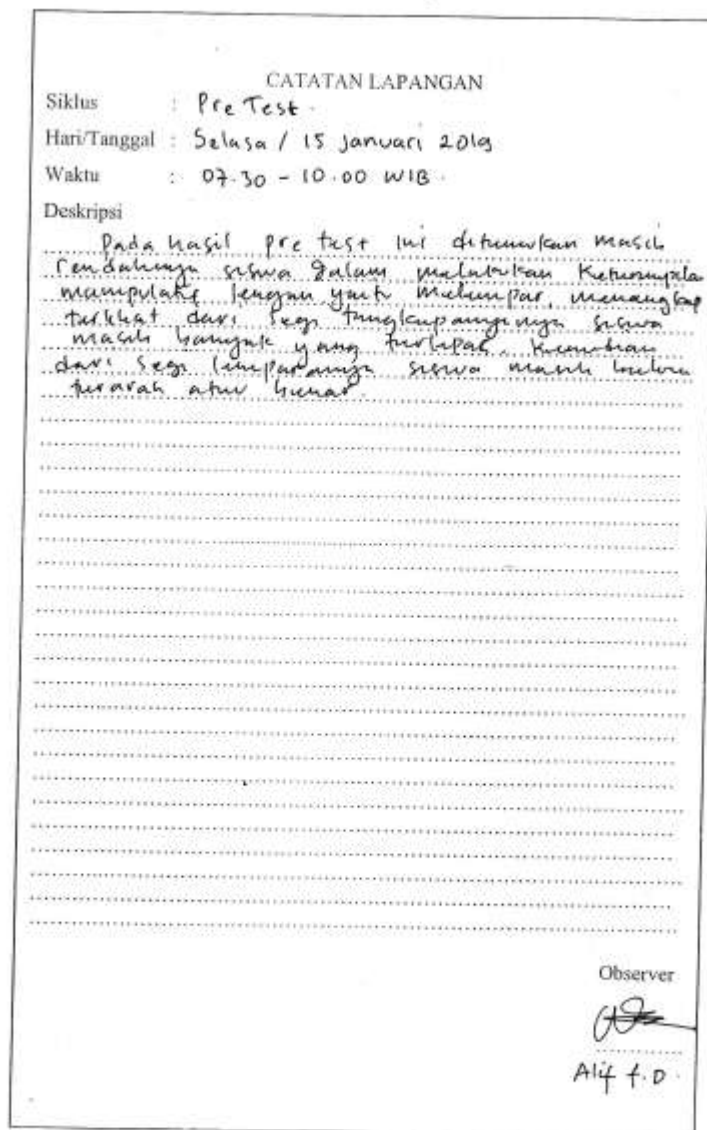 CATATAN LAPANGAN
Siklus : Pre Test.
Hari/Tanggal : Selasa / 15 Januari 2019
Waktu : 07.30 - 10.00 WIB.
Deskripsi
Pada hasil pre test ini ditemukan masih
rendahnya siswa dalam melakukan
lengan yaitu melempar, menangkap
terlihat dari segi siswa
masih banyak yang terlepas, kemudian
dari segi lemparannya siswa masih belum
terarah atur benar.
Observer
Alif F.D.